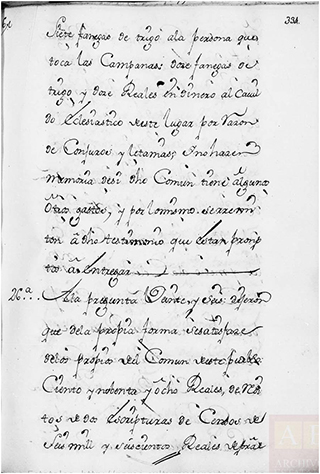 331
Siete fanegas de trigo ala persona que
toca las Campanas: doze fanegas de
trigo y doze Reales en dinero al Cavil
do Eclesiastico deste lugar por razon
de Conjuros y letanias; y no hazen
memoria de si dho Comun tiene alguno
otros gastos, y por lo mismo se remi
ten à dho testimonio que estan promp
tos à entregar
26.a.. Ala pregunta Veinte, y seis: dijeron
que dela propia forma se satisfaze
delos propios del Comun deste pueblo
Ciento y nobenta y ocho Reales, de redi
tos de dos escripturas de Censos de
Seis mill y seiscientos Reales de prin